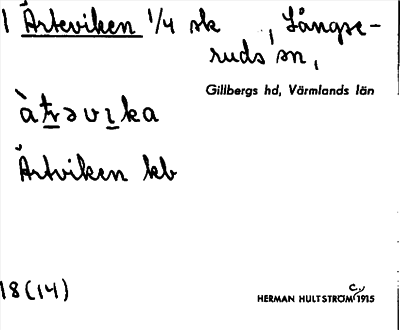 1 Årteviken 1/4 sk , Långse-
ruds sn,
Gillbergs hd, Värmlands län
àt̲rəvı̲ka
Årtviken kb
18(14)
HERMAN HULTSTRÖM c. 1915